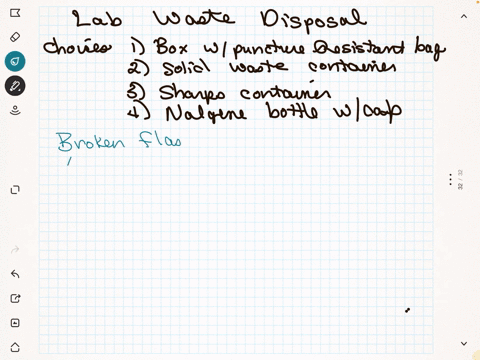 Lab Waste Disposal
choices 1) Box w/puncture resistant bag
2) Solid waste container
3) Sharps container
4) Nalgene bottle w/cap
Broken flas
32 / 32